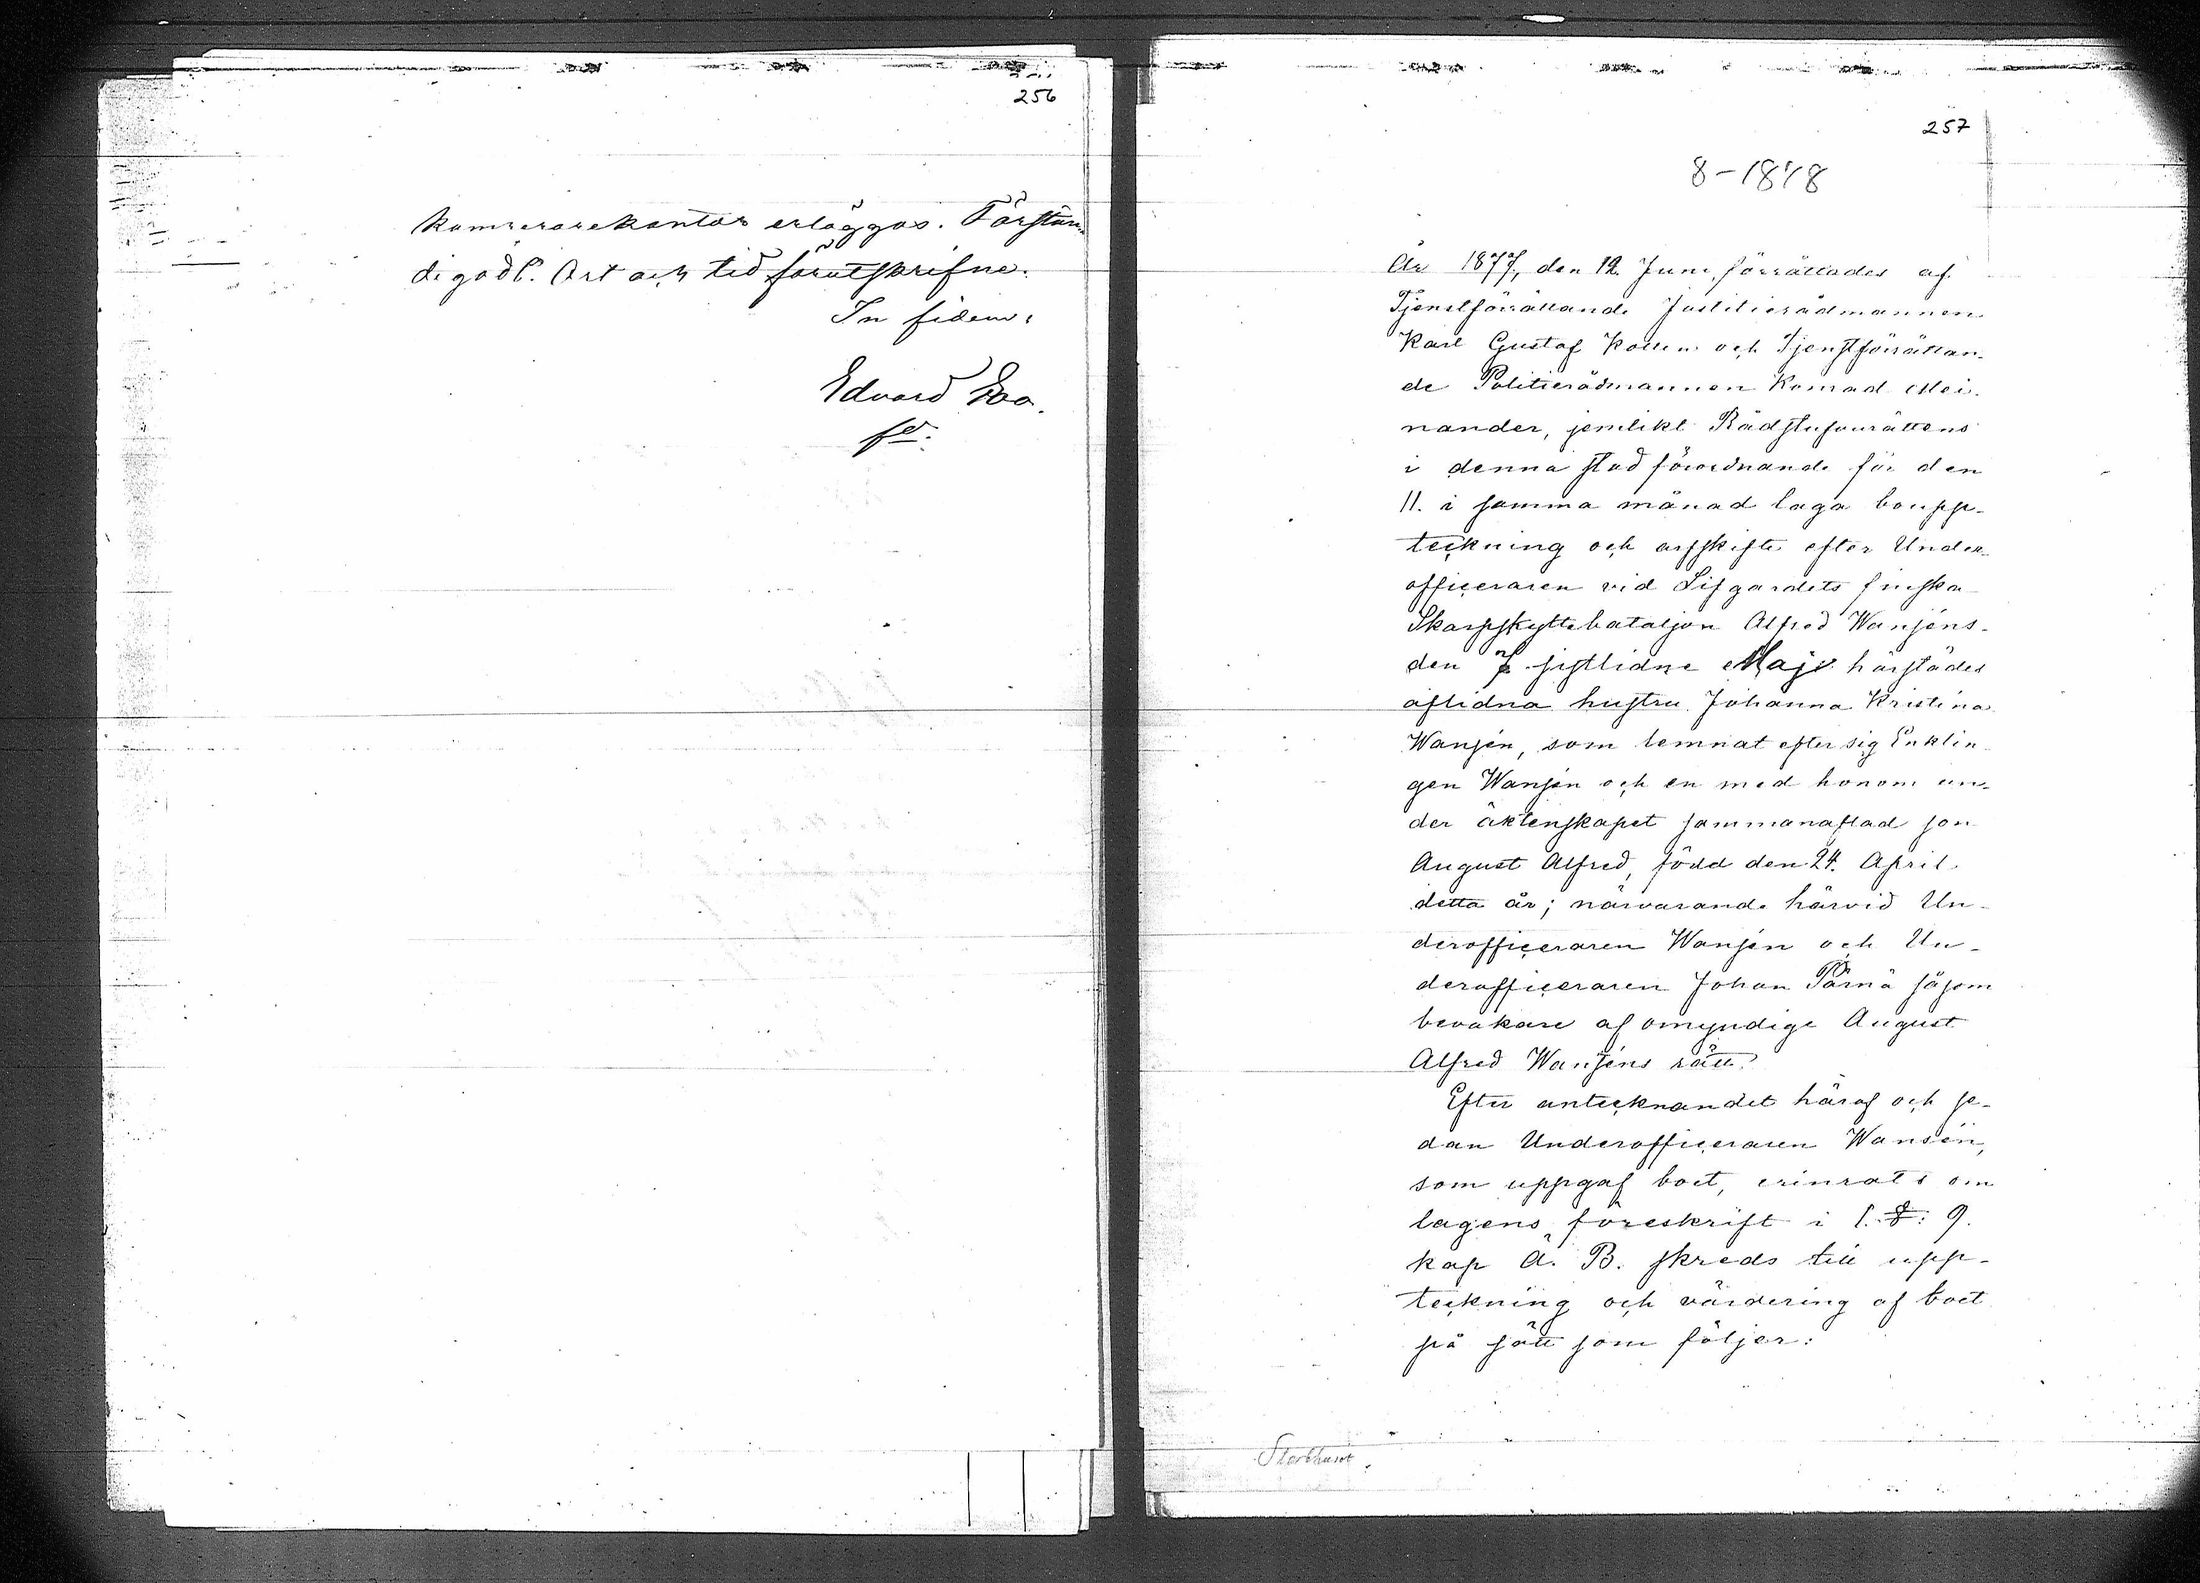 256
kamrerarekontor erlägges. Förstån-
digadt. Ort och tid förutskrifne.
In fidem:
Edvard
257
8-1878
År 1877, den 12. Juni, förrättades af
Tjenstförrättande Justitierådmannen
Karl Gustaf och Tjenstförrättan-
de Politierådmannen Konrad Mei-
nander, jemlikt Rådstufvurättens
i denna stad förordnande för den
11. i samma månad laga boupp-
teckning och arfskifte efter Under-
officeraren vid Lifgardets finska
Skarpskyttebataljon Alfred Wanséns
den 7 sistlidne Maji härstädes
aflidna hustru Johanna Kristina
Wansén, som lemnat efter sig Enklin-
gen Wansén och en med honom un-
der äktenskapet sammanaflad son
August Alfred, född den 24. April
detta år; närvarande härvid Un-
derofficeraren Wansén och Un-
derofficeraren Johan Pärnä såsom
bevakare af omyndige August
Alfred Wanséns rätt.
Efter antecknandet häraf och se-
dan Underofficeraren Wansén,
som uppgaf boet, erinrats om
lagens föreskrift i 1. §: 9.
kap Ä. B. skreds till upp-
teckning och värdering af boet
på sätt som följer:
Sterbhuset